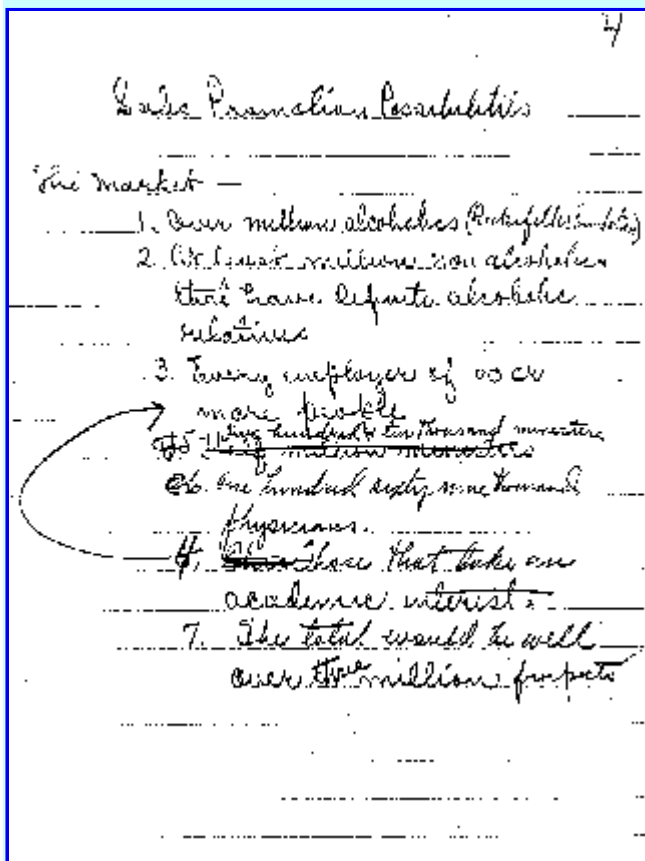 4
Sales Promotion Possibilities
The market —
1. Over million alcoholics (Rockefeller
2. At least million non alcoholics
that have definite alcoholic
relatives
3. Every employer of 00 or
more people
5. five hundred & ten thousand ministers
million ministers
6. One hundred sixty nine thousand
physicians.
4. Those that take an
academic interest.
7. The total would be well
over three million prospects